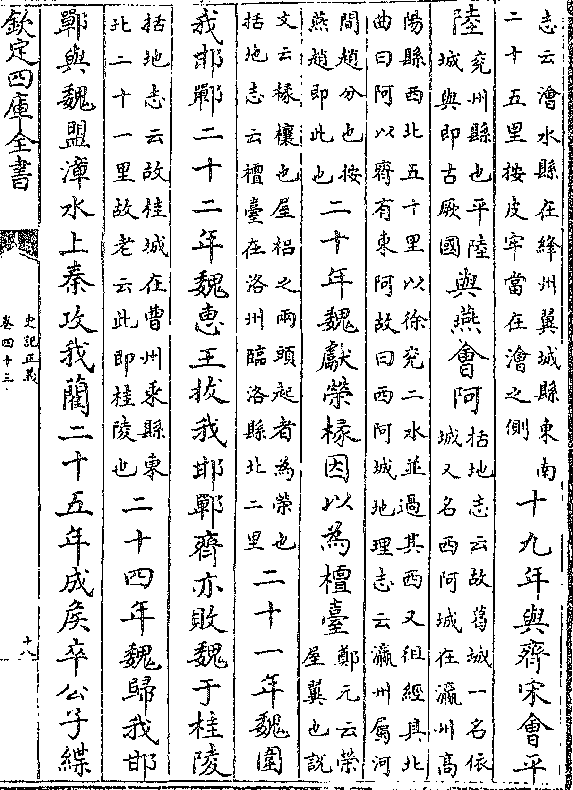 志云澮水縣在絳州翼城縣東南
二十五里按皮牢當在澮之側
十九年與齊宋會平
陸
兖州縣也平陸
城與即古厥國
與燕會阿
括地志云故葛城一名依
城又名西阿城在瀛州高
陽縣西北五十里以徐兖二水並過其西又徂經其北
曲曰阿以齊有東阿故曰西阿城地理志云瀛州屬河
間趙分也按
燕趙即此也
二十年魏獻榮椽因以為檀臺
鄭元云榮
屋翼也說
文云椽欀也屋梠之兩頭起者為榮也
括地志云檀臺在洛州臨洛縣北二里
二十一年魏圍
我邯鄲二十二年魏惠王拔我邯鄲齊亦敗魏于桂陵
括地志云故桂城在曹州乘縣東
北二十一里故老云此即桂陵也
二十四年魏歸我邯
鄲與魏盟漳水上秦攻我藺二十五年成侯卒公子緤
欽定四庫全書
史記正義
卷四十三
十八